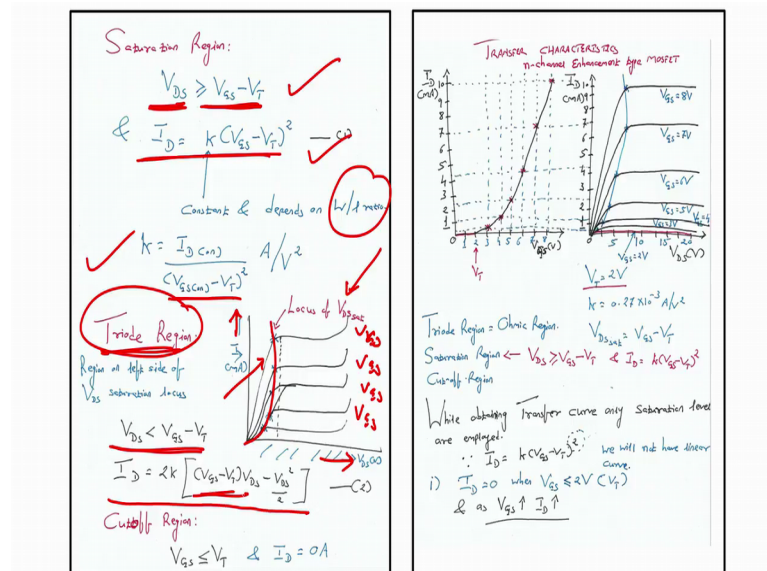 Saturation Region:
V_DS ≥ V_GS - V_T
& I_D = k (V_GS - V_T)^2
Constant & depends on W/l ratio
k = I_D(on) / (V_GS(on) - V_T)^2 A/V^2
Triode Region
Region on left side of
V_DS saturation locus
Locus of V_DSsat
I_D (mA)
VGS
VGS
VGS
VGS
V_DS(V)
V_DS < V_GS - V_T
I_D = 2k [ (V_GS - V_T) V_DS - V_DS^2 / 2 ] —(2)
Cutoff Region:
V_GS ≤ V_T & I_D = 0A
TRANSFER CHARACTERISTICS
n-channel Enhancement type MOSFET
I_D (mA)
10
9
8
7
6
5
4
3
2
1
1 2 3 4 5 6 7 8
V_GS(V)
V_T
I_D (mA)
10
9
8
7
6
5
4
3
2
1
V_GS=8V
V_GS=7V
V_GS=6V
V_GS=5V
5 10 15 20
V_DS(V)
V_GS=2V
V_T = 2V
k = 0.27 X10^-3 A/V^2
Triode Region = Ohmic Region.
V_DSsat = V_GS - V_T
Saturation Region ← V_DS ≥ V_GS - V_T & I_D = k(V_GS - V_T)^2
Cut-off Region
While obtaining Transfer curve only Saturation level
are employed.
∵ I_D = k(V_GS - V_T)^2
we will not have linear
curve.
i) I_D = 0 when V_GS ≤ 2V (V_T)
& as V_GS ↑ I_D ↑